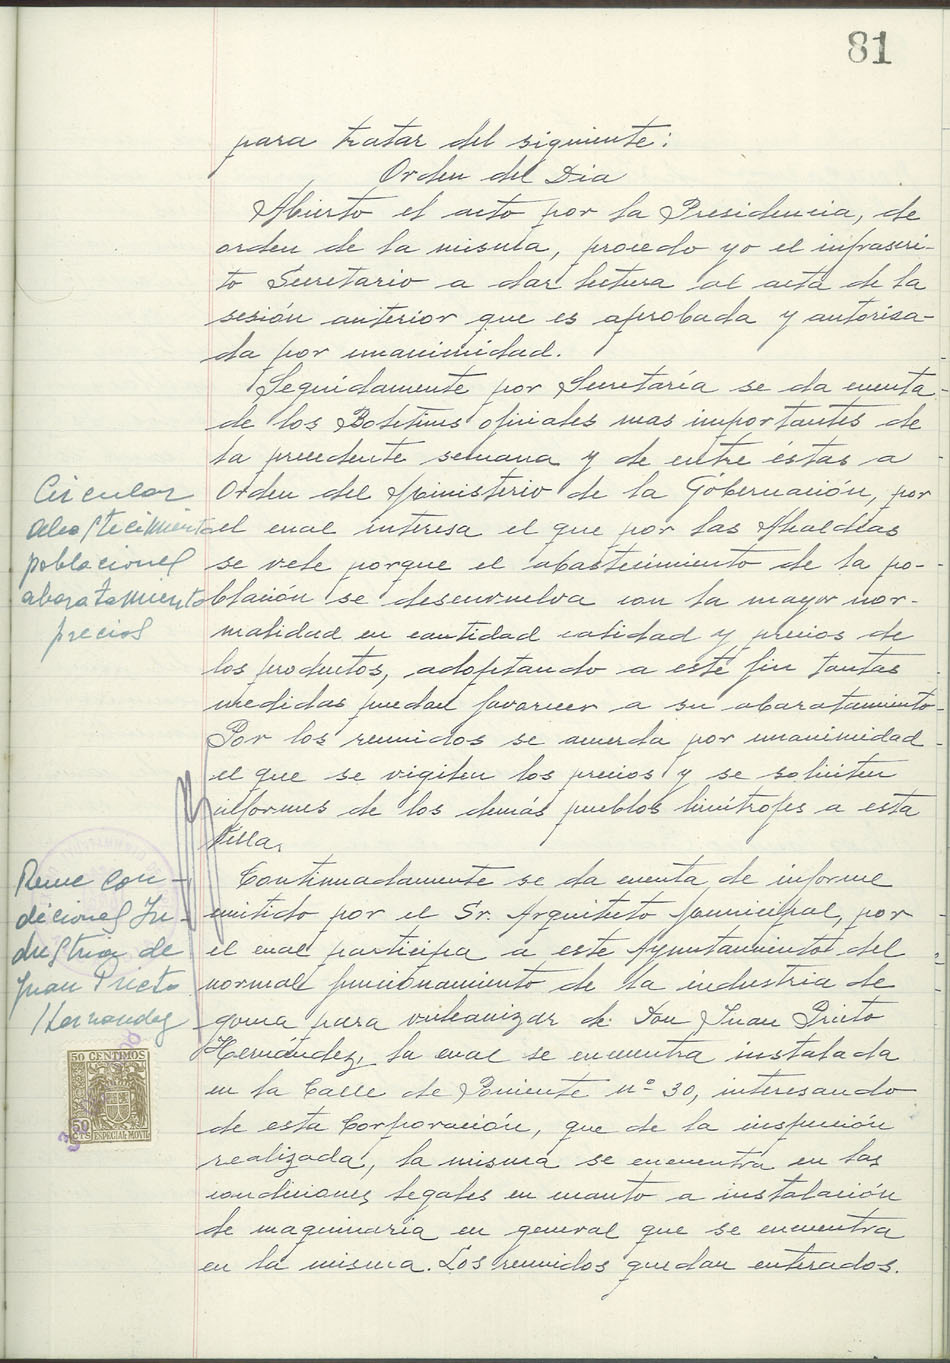 81
para tratar del siguiente:
Orden del Dia
Abierto el acto por la Presidencia, de
orden de la misma, procedo yo el infrascri-
to Secretario a dar lectura al acta de la
sesión anterior que es aprobada y autoriza-
da por unanimidad.
Seguidamente por Secretaría se da cuenta
de los Boletines oficiales mas importantes de
la precedente semana y de entre éstas a
Circular
abastecimiento
poblacional
abaratamiento
precios
Orden del Ministerio de la Gobernación, por
el cual interesa el que por las Alcaldías
se vele porque el abastecimiento de la po-
blación se desenvuelva con la mayor nor-
malidad en cantidad calidad y precios de
los productos, adoptando a este fin tantas
medidas puedan favorecer a su abaratamiento.
Por los reunidos se acuerda por unanimidad
el que se vigilen los precios y se soliciten
informes de los demás pueblos limítrofes a esta
Villa.
Reune con-
diciones In-
dustria de
Juan Prieto
Hernandez
Continuadamente se da cuenta de informe
emitido por el Sr. Arquitecto Municipal, por
el cual participa a este Ayuntamiento del
normal funcionamiento de la industria de
goma para vulcanizar de Don Juan Prieto
Hernández, la cual se encuentra instalada
en la Calle de Poniente nº 30, interesando
de esta Corporación, que de la inspección
realizada, la misma se encuentra en las
condiciones legales en cuanto a instalación
de maquinaria en general que se encuentra
en la misma. Los reunidos quedan enterados.
50 CENTIMOS
50
CTS ESPECIAL MOVIL